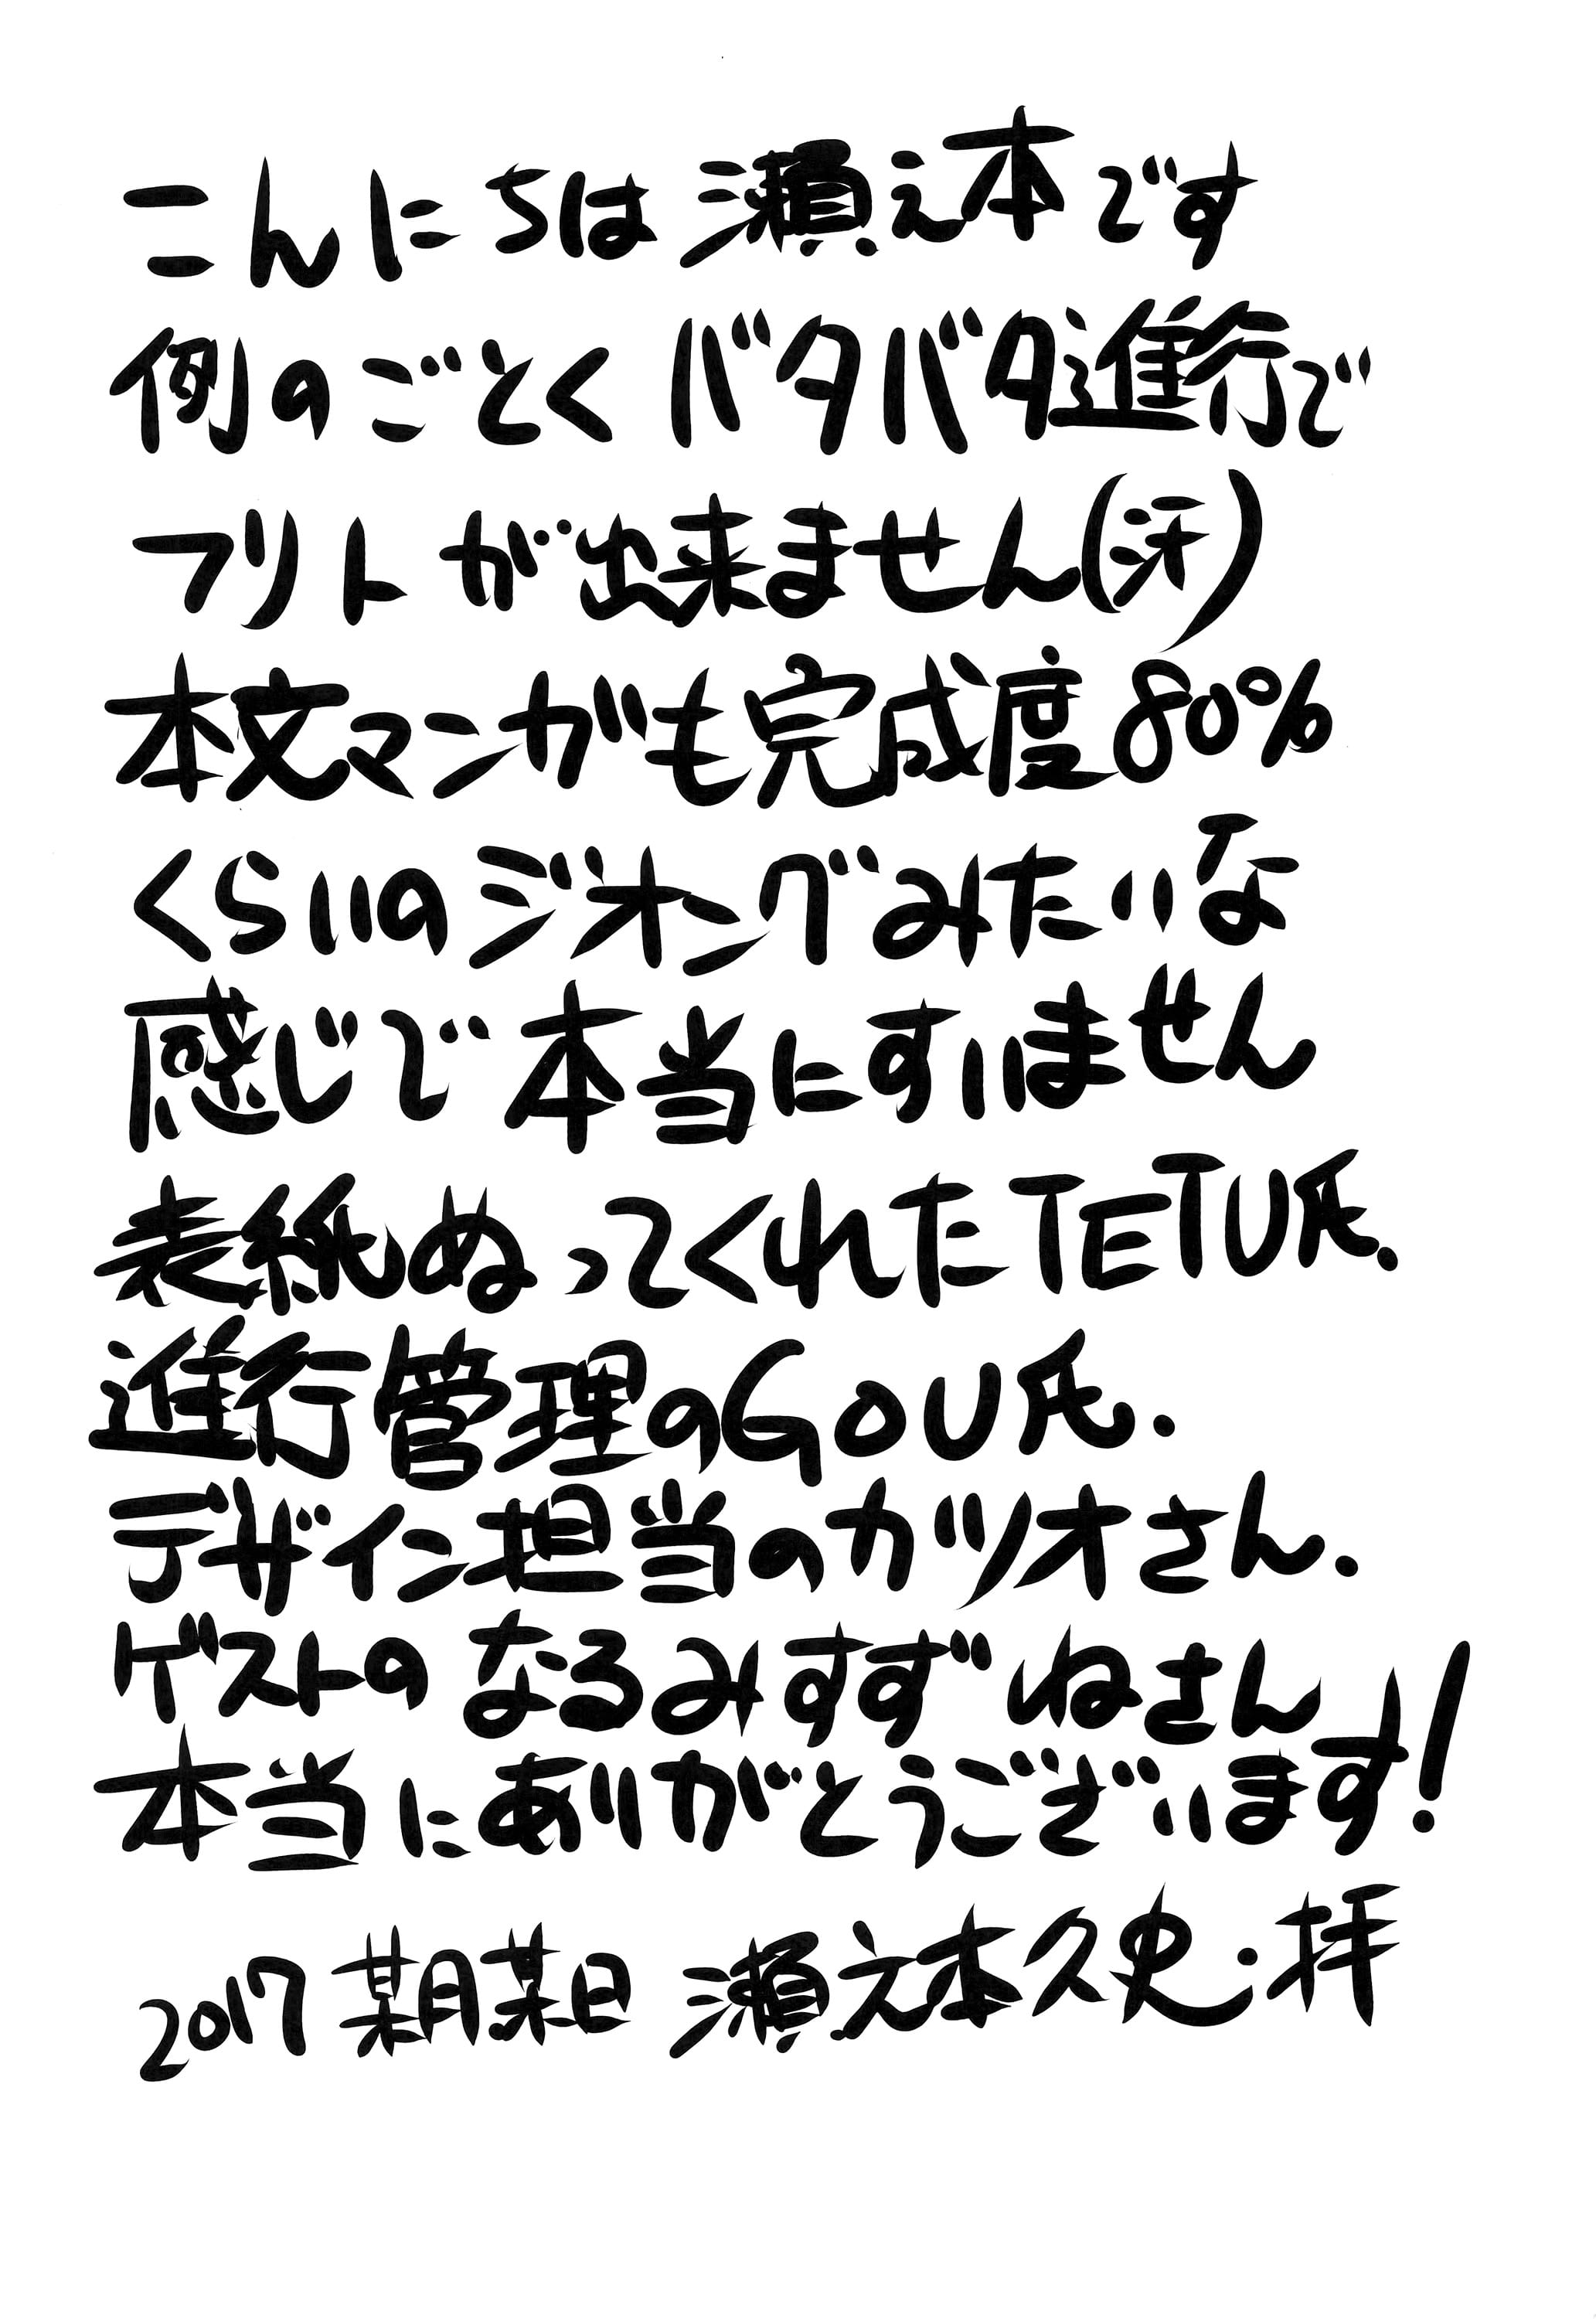 こんにちは 瀬之本です
例のごとく バタバタ進行で
フリトが出来ません(汗)
本文マンガも完成度80%
くらいのジオングみたいな
感じで 本当にすいません
表紙ぬってくれた TETU氏.
進行管理のGOU氏.
デザイン担当のカツオさん.
ゲストの なるみすずねさん
本当にありがとうございます!
2017 某月某日 瀬之本久史・拝